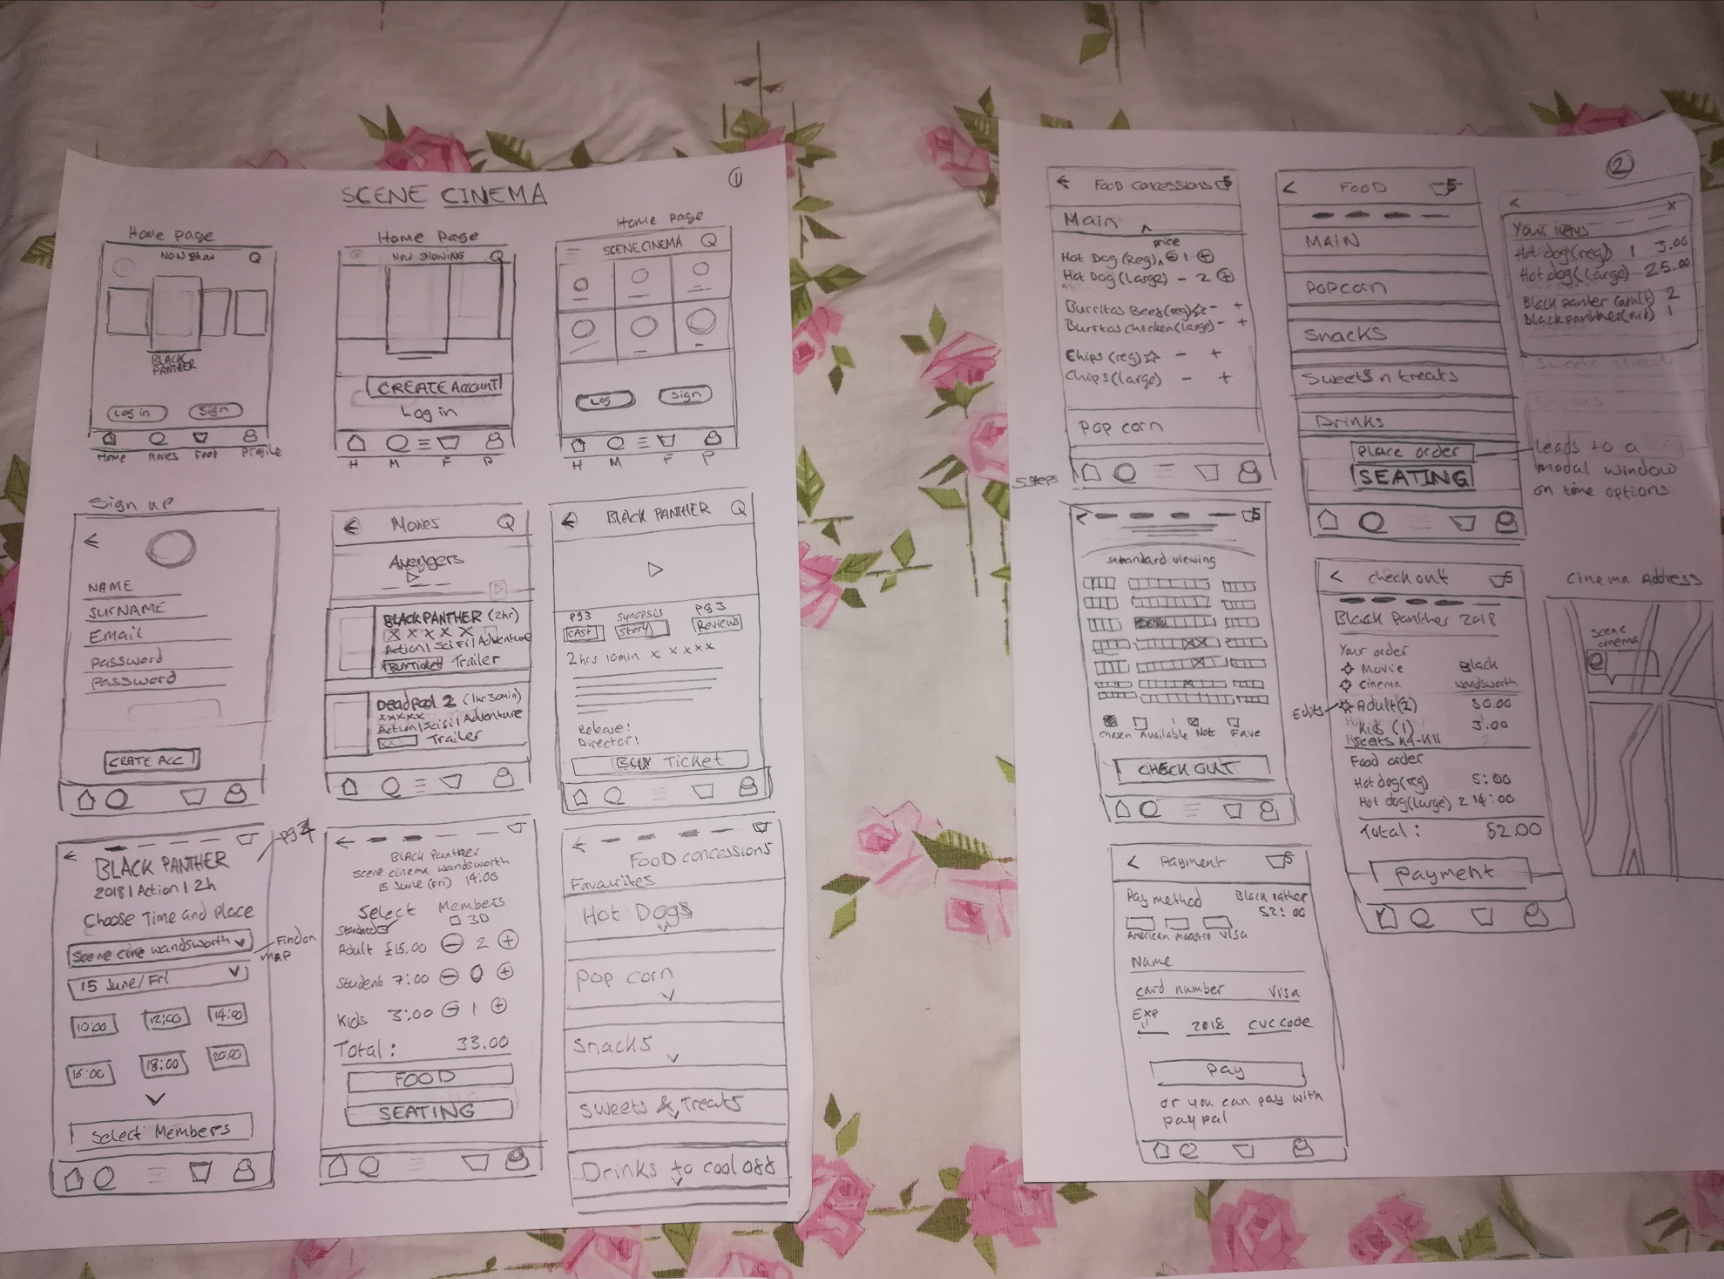 SCENE CINEMA
①
Home Page
NOW Show
BLACK
PANTHER
Log in
Sign
Home
Movies
Food
Profile
Home Page
NOW SHOWING
CREATE Account
Log in
H M F P
Home Page
SCENE CINEMA
Log
Sign
H M F P
Sign up
NAME
SURNAME
Email
password
password
CRATE ACC
Movies
Avengers
BLACK PANTHER (2hr)
X X X X X
Action | Scifi | Adventure
Buy Ticket Trailer
DeadPool 2 (1hr30min)
xxxxx
Action | Scifi | Adventure
Trailer
BLACK PANTHER
Pg3 Synopsis Pg3
CAST Story Reviews
2hrs 10min x x x x x
Release:
Director:
BUY Ticket
pg4
BLACK PANTHER
2018 | Action | 2h
Choose Time and place
Scene cine wandsworth
Find on
map
15 June/Fri
10:00 12:00 14:00
16:00 18:00 20:00
Select Members
BLACK Panther
Scene cinema wandsworth
15 June (Fri) 14:00
Select Members
Standard 3D
Adult £15.00 - 2 +
Student 7:00 - 0 +
Kids 3:00 - 1 +
Total: 33.00
FOOD
SEATING
FooD concessions
Favourites
Hot Dogs
Pop corn
Snacks
Sweets & Treats
Drinks to cool off
②
Food concessions 5
Main
price
Hot Dog (Reg) - 1 +
Hot Dog (Large) - 2 +
Burritas Beef (reg) - +
Burritas chicken (large) - +
Chips (reg) - +
Chips (large) - +
Pop corn
FOOD
MAIN
Popcorn
Snacks
Sweets n treats
Drinks
Place order
SEATING
Leads to a
modal window
on time options
x
Your items
Hot dog (reg) 1 3.00
Hot dog (large) 25.00
Black panter (adult) 2
Black panther (kid) 1
5 steps
5
standard viewing
chosen Available Not Fave
CHECK OUT
check out 5
Black Panther 2018
Your order
Movie Black
Cinema wandsworth
Edits
Adult (2) 30.00
Kids (1) 3.00
Seats H9-H11
Food order
Hot dog (reg) 5:00
Hot dog (large) 2 14:00
Total: 52.00
Payment
Cinema Address
Scene
cinema
Payment 5
Pay method Black Panther
52:00
American maestro visa
Name
card number visa
Exp
11 2018 CVC code
Pay
or you can pay with
paypal